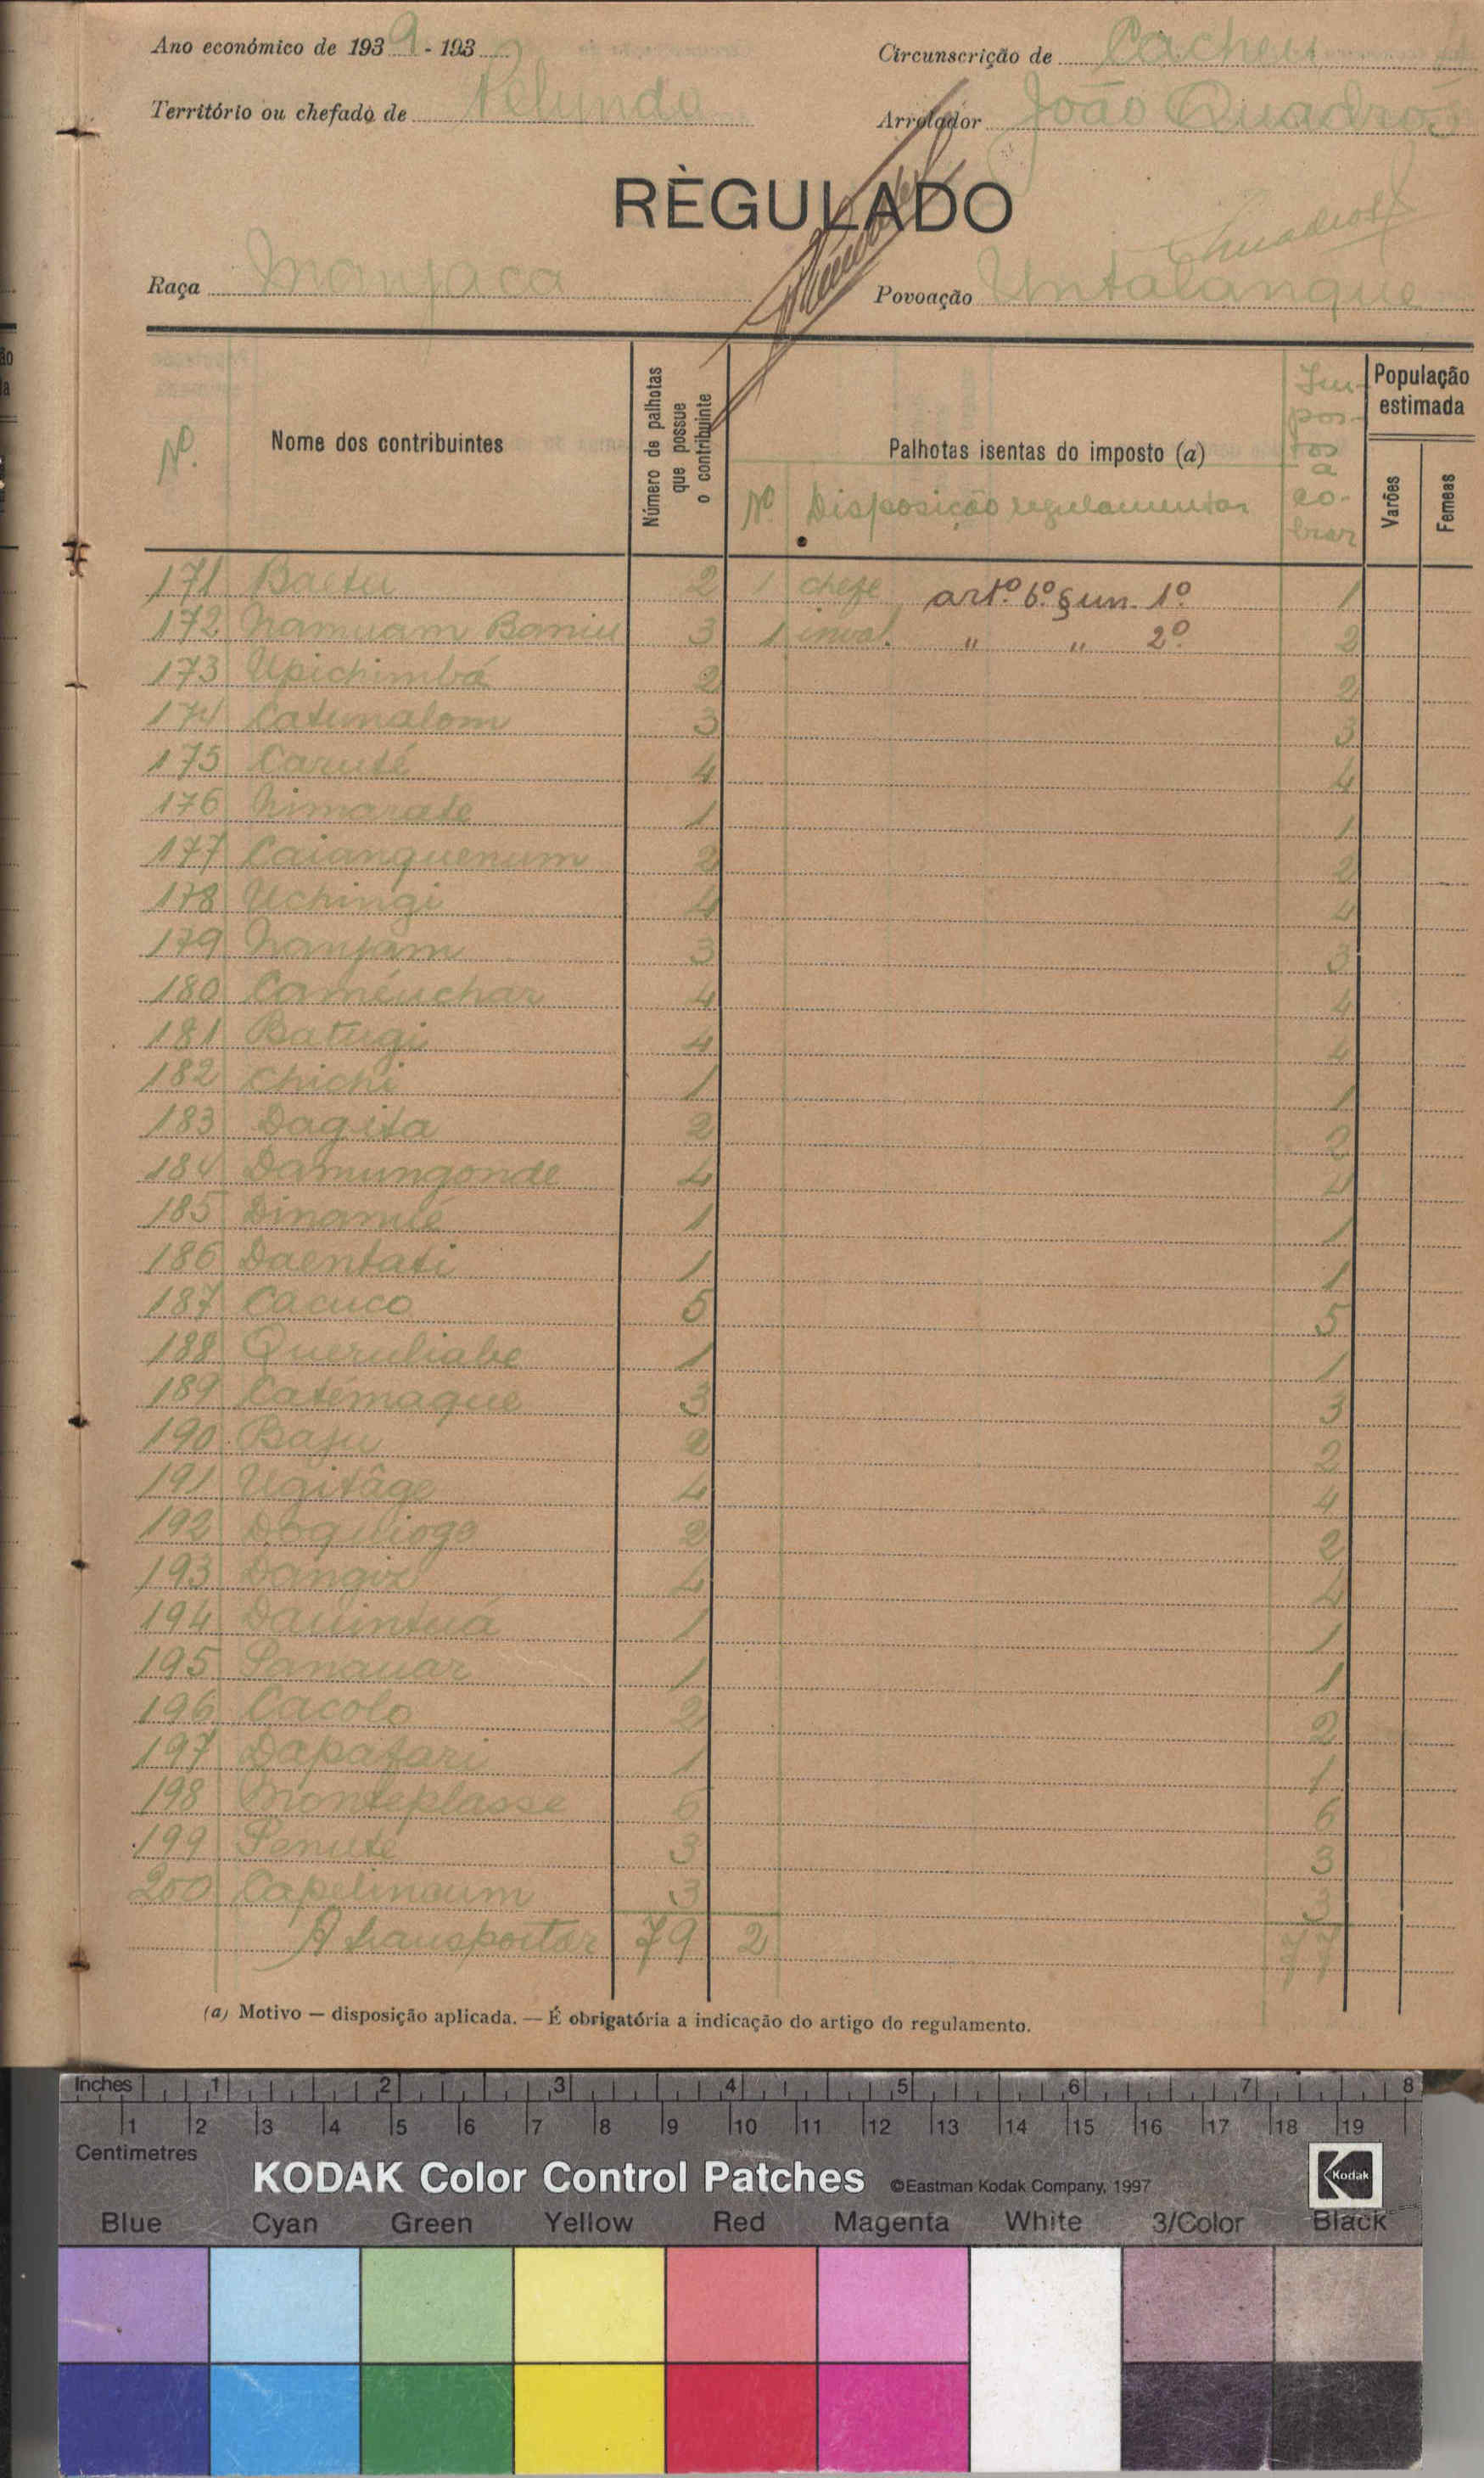 Ano económico de 1939 - 193
Circunscrição de Cacheu
Território ou chefado de Pelundo
Arrolador João Quadros
RÈGULADO
Quadros
Raça Manjaca
Povoação Untalanque
Nº. Nome dos contribuintes Número de palhotas que possue o contribuinte Palhotas isentas do imposto (a) Nº Disposição regulamentar Impostos a cobrar População estimada Varões Femeas
171 Baetu 2 1 chefe artº. 6º. § un. 1º 1
172 Namuam Baniu 3 1 inval. " " 2º 2
173 Upichimbá 2 2
174 Catumalom 3 3
175 Caruté 4 4
176 Nimarate 1 1
177 Caianquenum 2 2
178 Uchingi 4 4
179 Nanjam 3 3
180 Caméuchar 4 4
181 Batugi 4 4
182 Chichi 1 1
183 Dagita 2 2
184 Damungonde 4 4
185 Dinamlé 1 1
186 Daentati 1 1
187 Cacuco 5 5
188 Queruliabe 1 1
189 Catémaque 3 3
190 Baju 2 2
191 Ugitâge 4 4
192 Doquiogo 2 2
193 4 4
194 Dauintuá 1 1
195 1 1
196 Cacolo 2 2
197 Dapafari 1 1
198 Monteplasse 6 6
199 3 3
200 Capelinaum 3 3
A transportar 79 2 77
(a) Motivo — disposição aplicada. — É obrigatória a indicação do artigo do regulamento.
Inches 1 2 3 4 5 6 7 8
1 2 3 4 5 6 7 8 9 10 11 12 13 14 15 16 17 18 19
Centimetres
KODAK Color Control Patches ©Eastman Kodak Company, 1997 Kodak
Blue Cyan Green Yellow Red Magenta White 3/Color Black